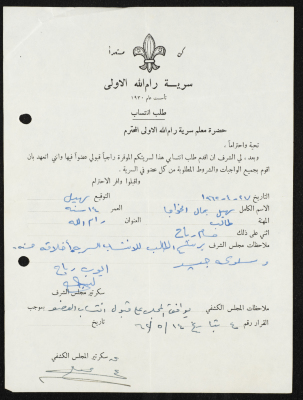 كن مستعداً
سرية رام الله الاولى
تأسست عام ١٩٣٠
طلب انتساب
حضرة معلم سرية رام الله الاولى المحترم
تحية واحتراماً ،
وبعد ، لي الشرف ان اقدم طلب انتسابي هذا لسريتكم الموقرة راجياً قبولي عضواً فيها واني اتعهد بان
اقوم بجميع الواجبات والشروط المطلوبة من كل عضو في السرية .
واقبلوا وافر الاحترام
التاريخ التوقيع سهيل
الاسم الكامل سهيل جمال الخواجا العمر ١٦ سنة
المهنة طالب العنوان رام الله
اثني على ذلك
ملاحظات مجلس الشرف
وسلوك جيد
ايوب رباح
سكرتير مجلس الشرف
ملاحظات المجلس الكشفي يوافق المجلس على قبول انتساب العضو بموجب
القرار رقم ٤ تاريخ
سكرتير المجلس الكشفي